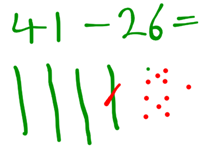 41 - 26 =